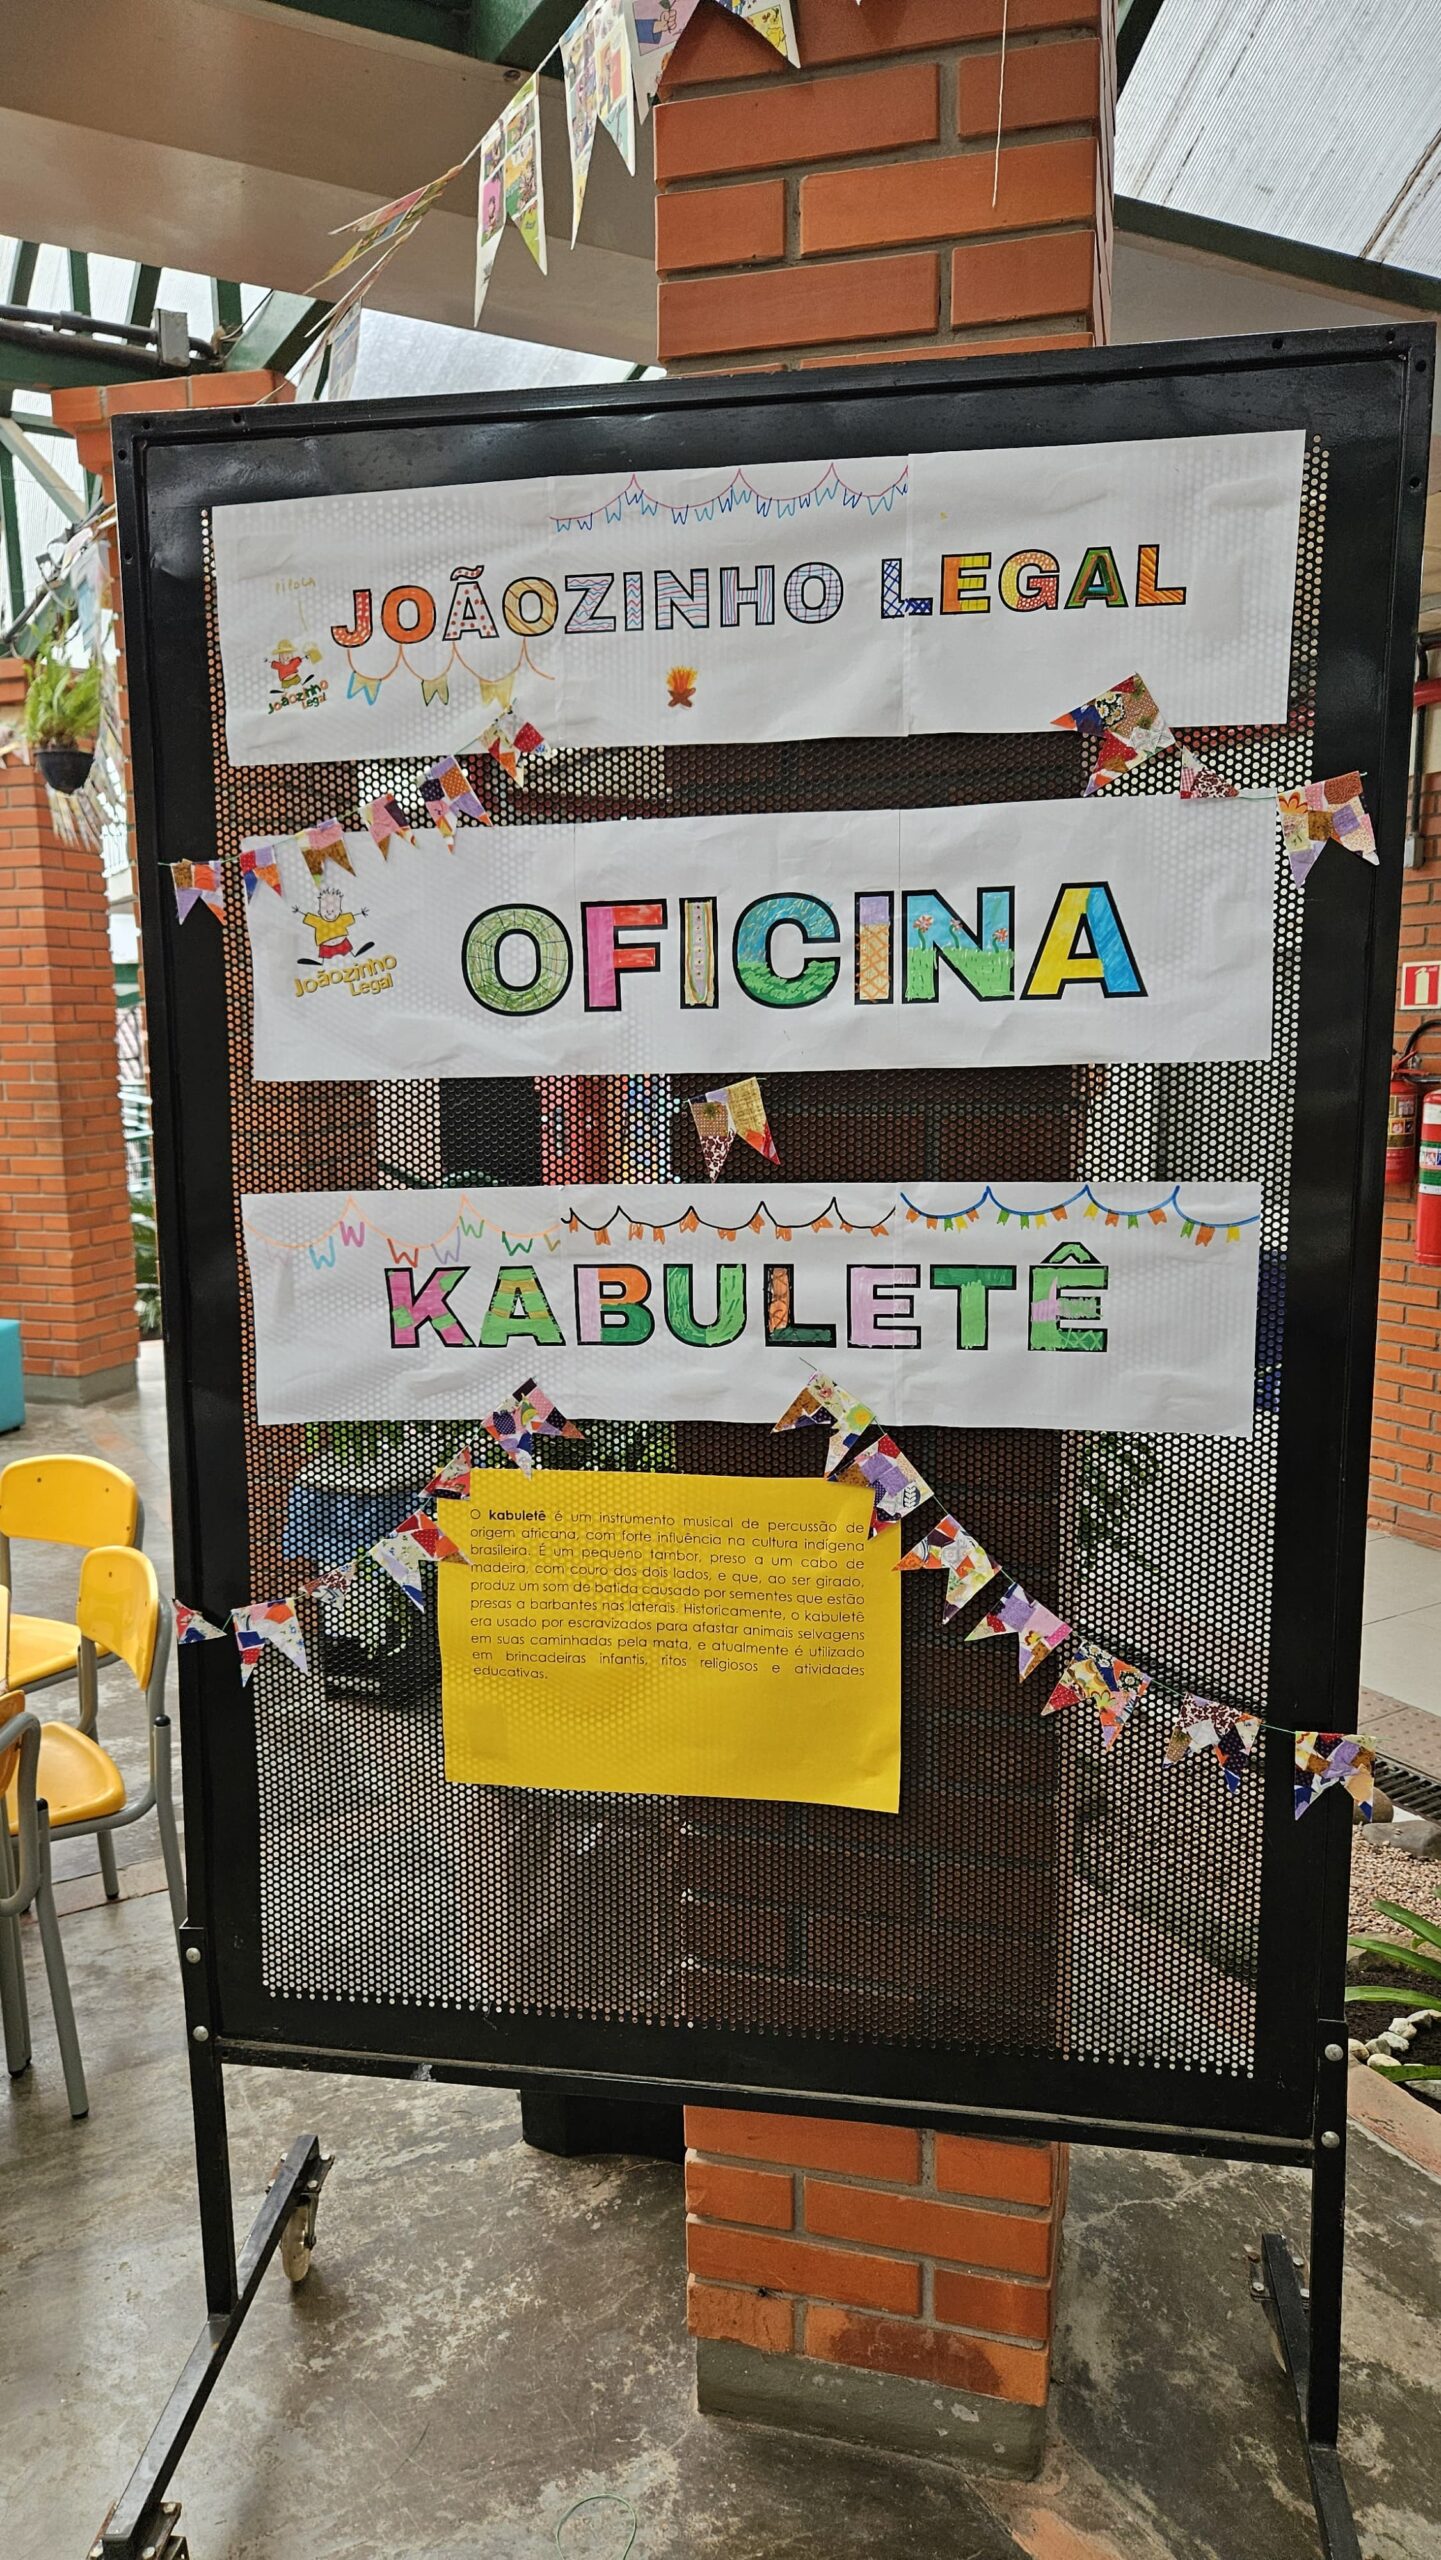 pipoca
JOÃOZINHO LEGAL
Joãozinho
Legal
OFICINA
Joãozinho
Legal
KABULETÊ
O kabuletê é um instrumento musical de percussão de
origem africana, com forte influência na cultura indígena
brasileira. É um pequeno tambor, preso a um cabo de
madeira, com couro dos dois lados, e que, ao ser girado,
produz um som de batida causado por sementes que estão
presas a barbantes nas laterais. Historicamente, o kabuletê
era usado por escravizados para afastar animais selvagens
em suas caminhadas pela mata, e atualmente é utilizado
em brincadeiras infantis, ritos religiosos e atividades
educativas.